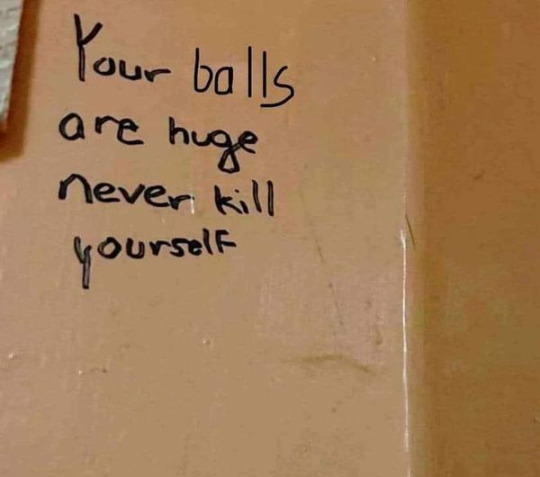 Your balls
are huge
never kill
yourself